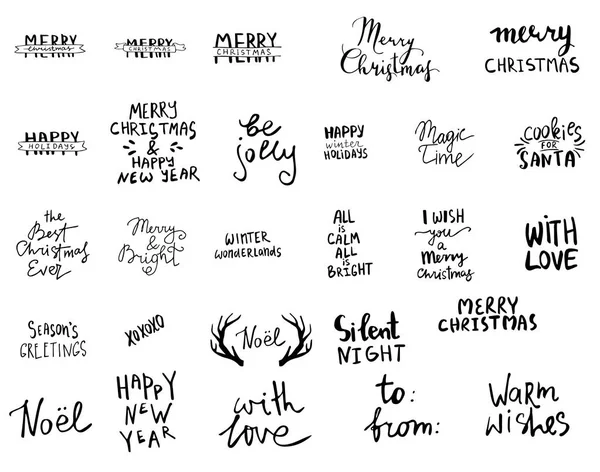 MERRY
Christmas
MERRY
MERRY
CHRISTMAS
MERRY
MERRY
CHRISTMAS
MERRY
Merry
Christmas
merry
CHRISTMAS
HAPPY
HOLIDAYS
MERRY
CHRISTMAS
&
HAPPY
NEW YEAR
be
jolly
HAPPY
winter
HOLIDAYS
Magic
Time
COOKIES
FOR
SANTA
the
Best
Christmas
Ever
Merry
&
Bright
WINTER
wonderlands
ALL
is
CALM
ALL
is
BRIGHT
I WISH
you
a
Merry
Christmas
WITH
LOVE
SEASON'S
GREETINGS
XOXOXO
Noël
Silent
NIGHT
MERRY
CHRISTMAS
Noël
HAPPY
NEW
YEAR
with
love
to:
from:
Warm
wishes